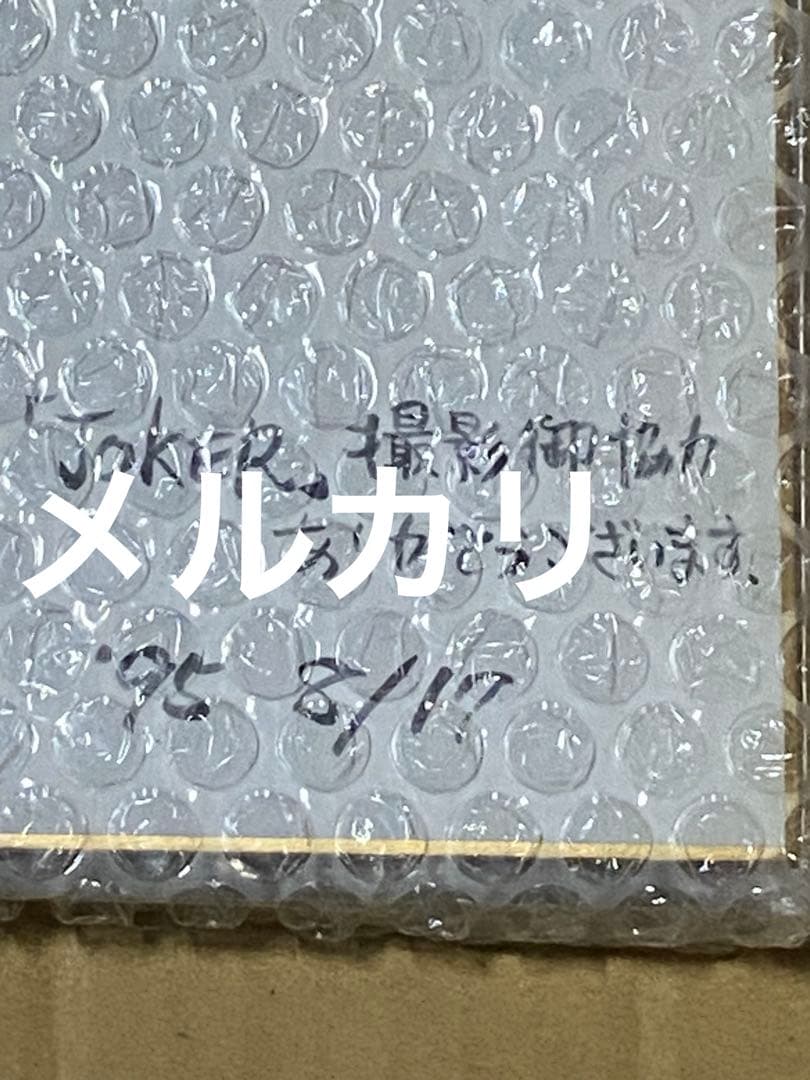 「JOKER」撮影御協力
メルカリ
ありがとうございます。
'95 8/17